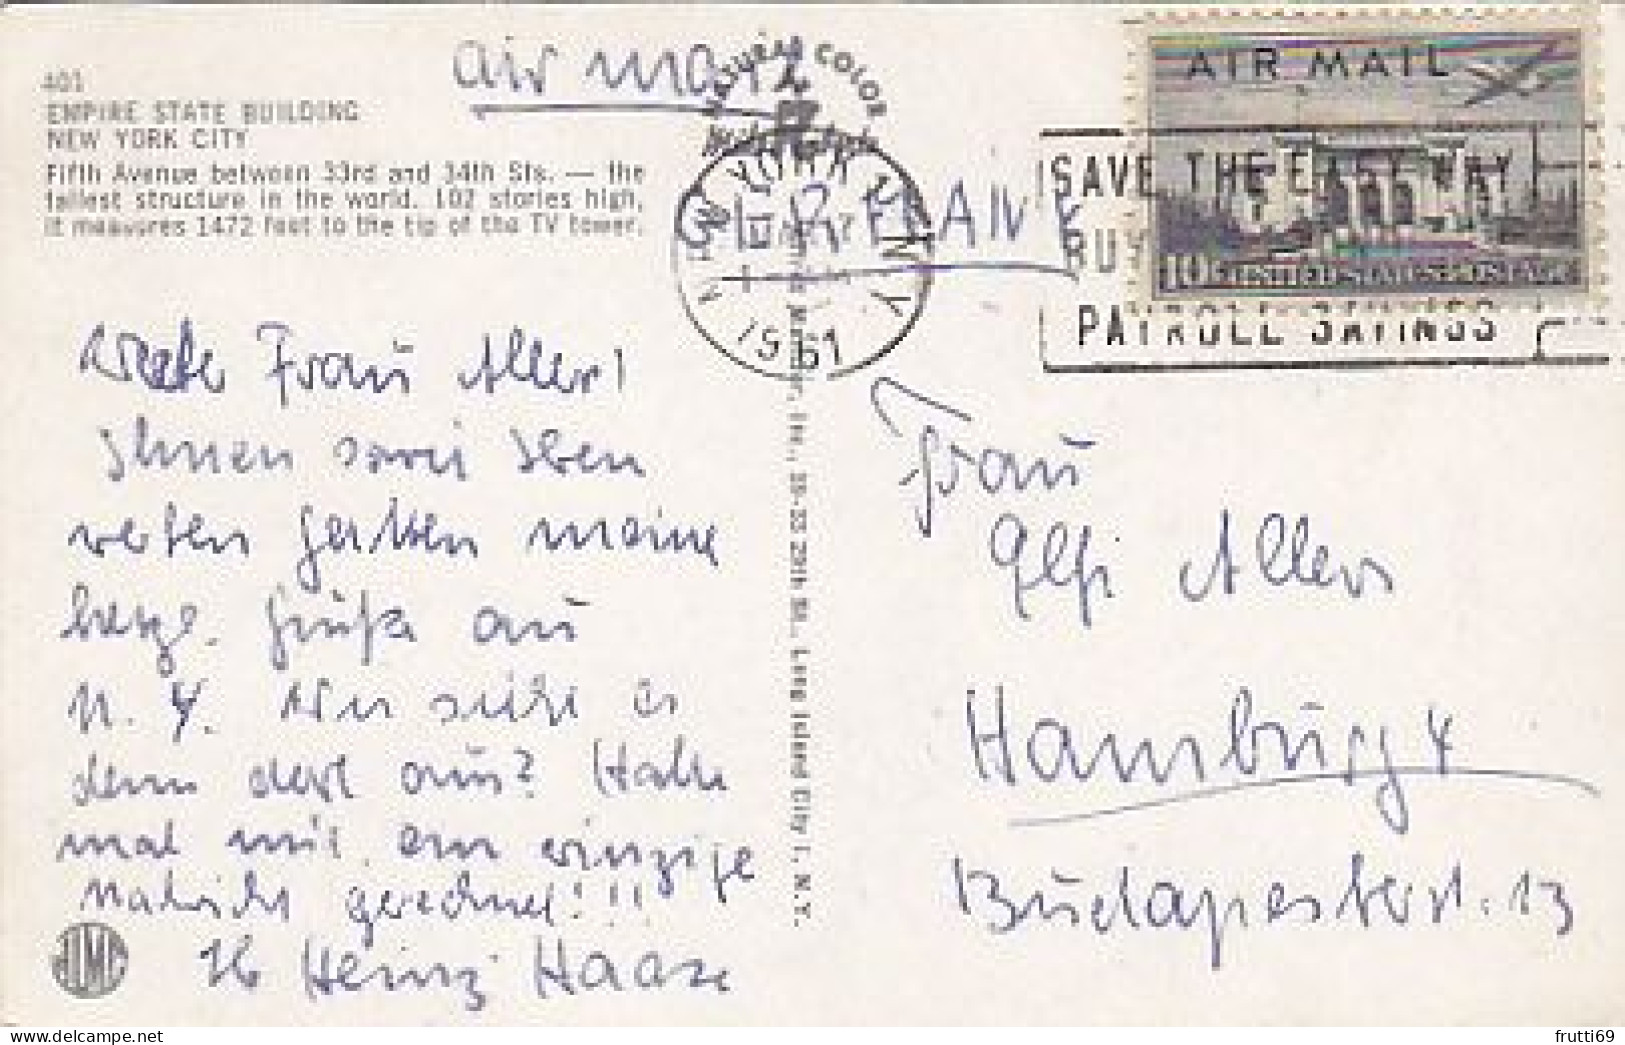 401
EMPIRE STATE BUILDING
NEW YORK CITY
Fifth Avenue between 33rd and 34th Sts. — the
tallest structure in the world. 102 stories high,
it measures 1472 feet to the tip of the TV tower.
air mail
NATURAL COLOR
NEW YORK, N.Y.
1961
AIR MAIL
10¢ UNITED STATES POSTAGE
SAVE THE EASY WAY
BUY
PAYROLL SAVINGS
Werte Frau Allers!
Ihnen sowie Ihren
werten Gatten meine
herzl. Grüße aus
N. Y. Wie sieht es
denn dort aus? Hatte
mal mit
einzige
Nachricht gerechnet!!!
Ih Heinz Haase
JLMC
Inc., 38-32 29th St., Long Island City 1, N.Y.
Frau
Elfi Allers
Hamburg 4
Budapesterst. 13
frutti69